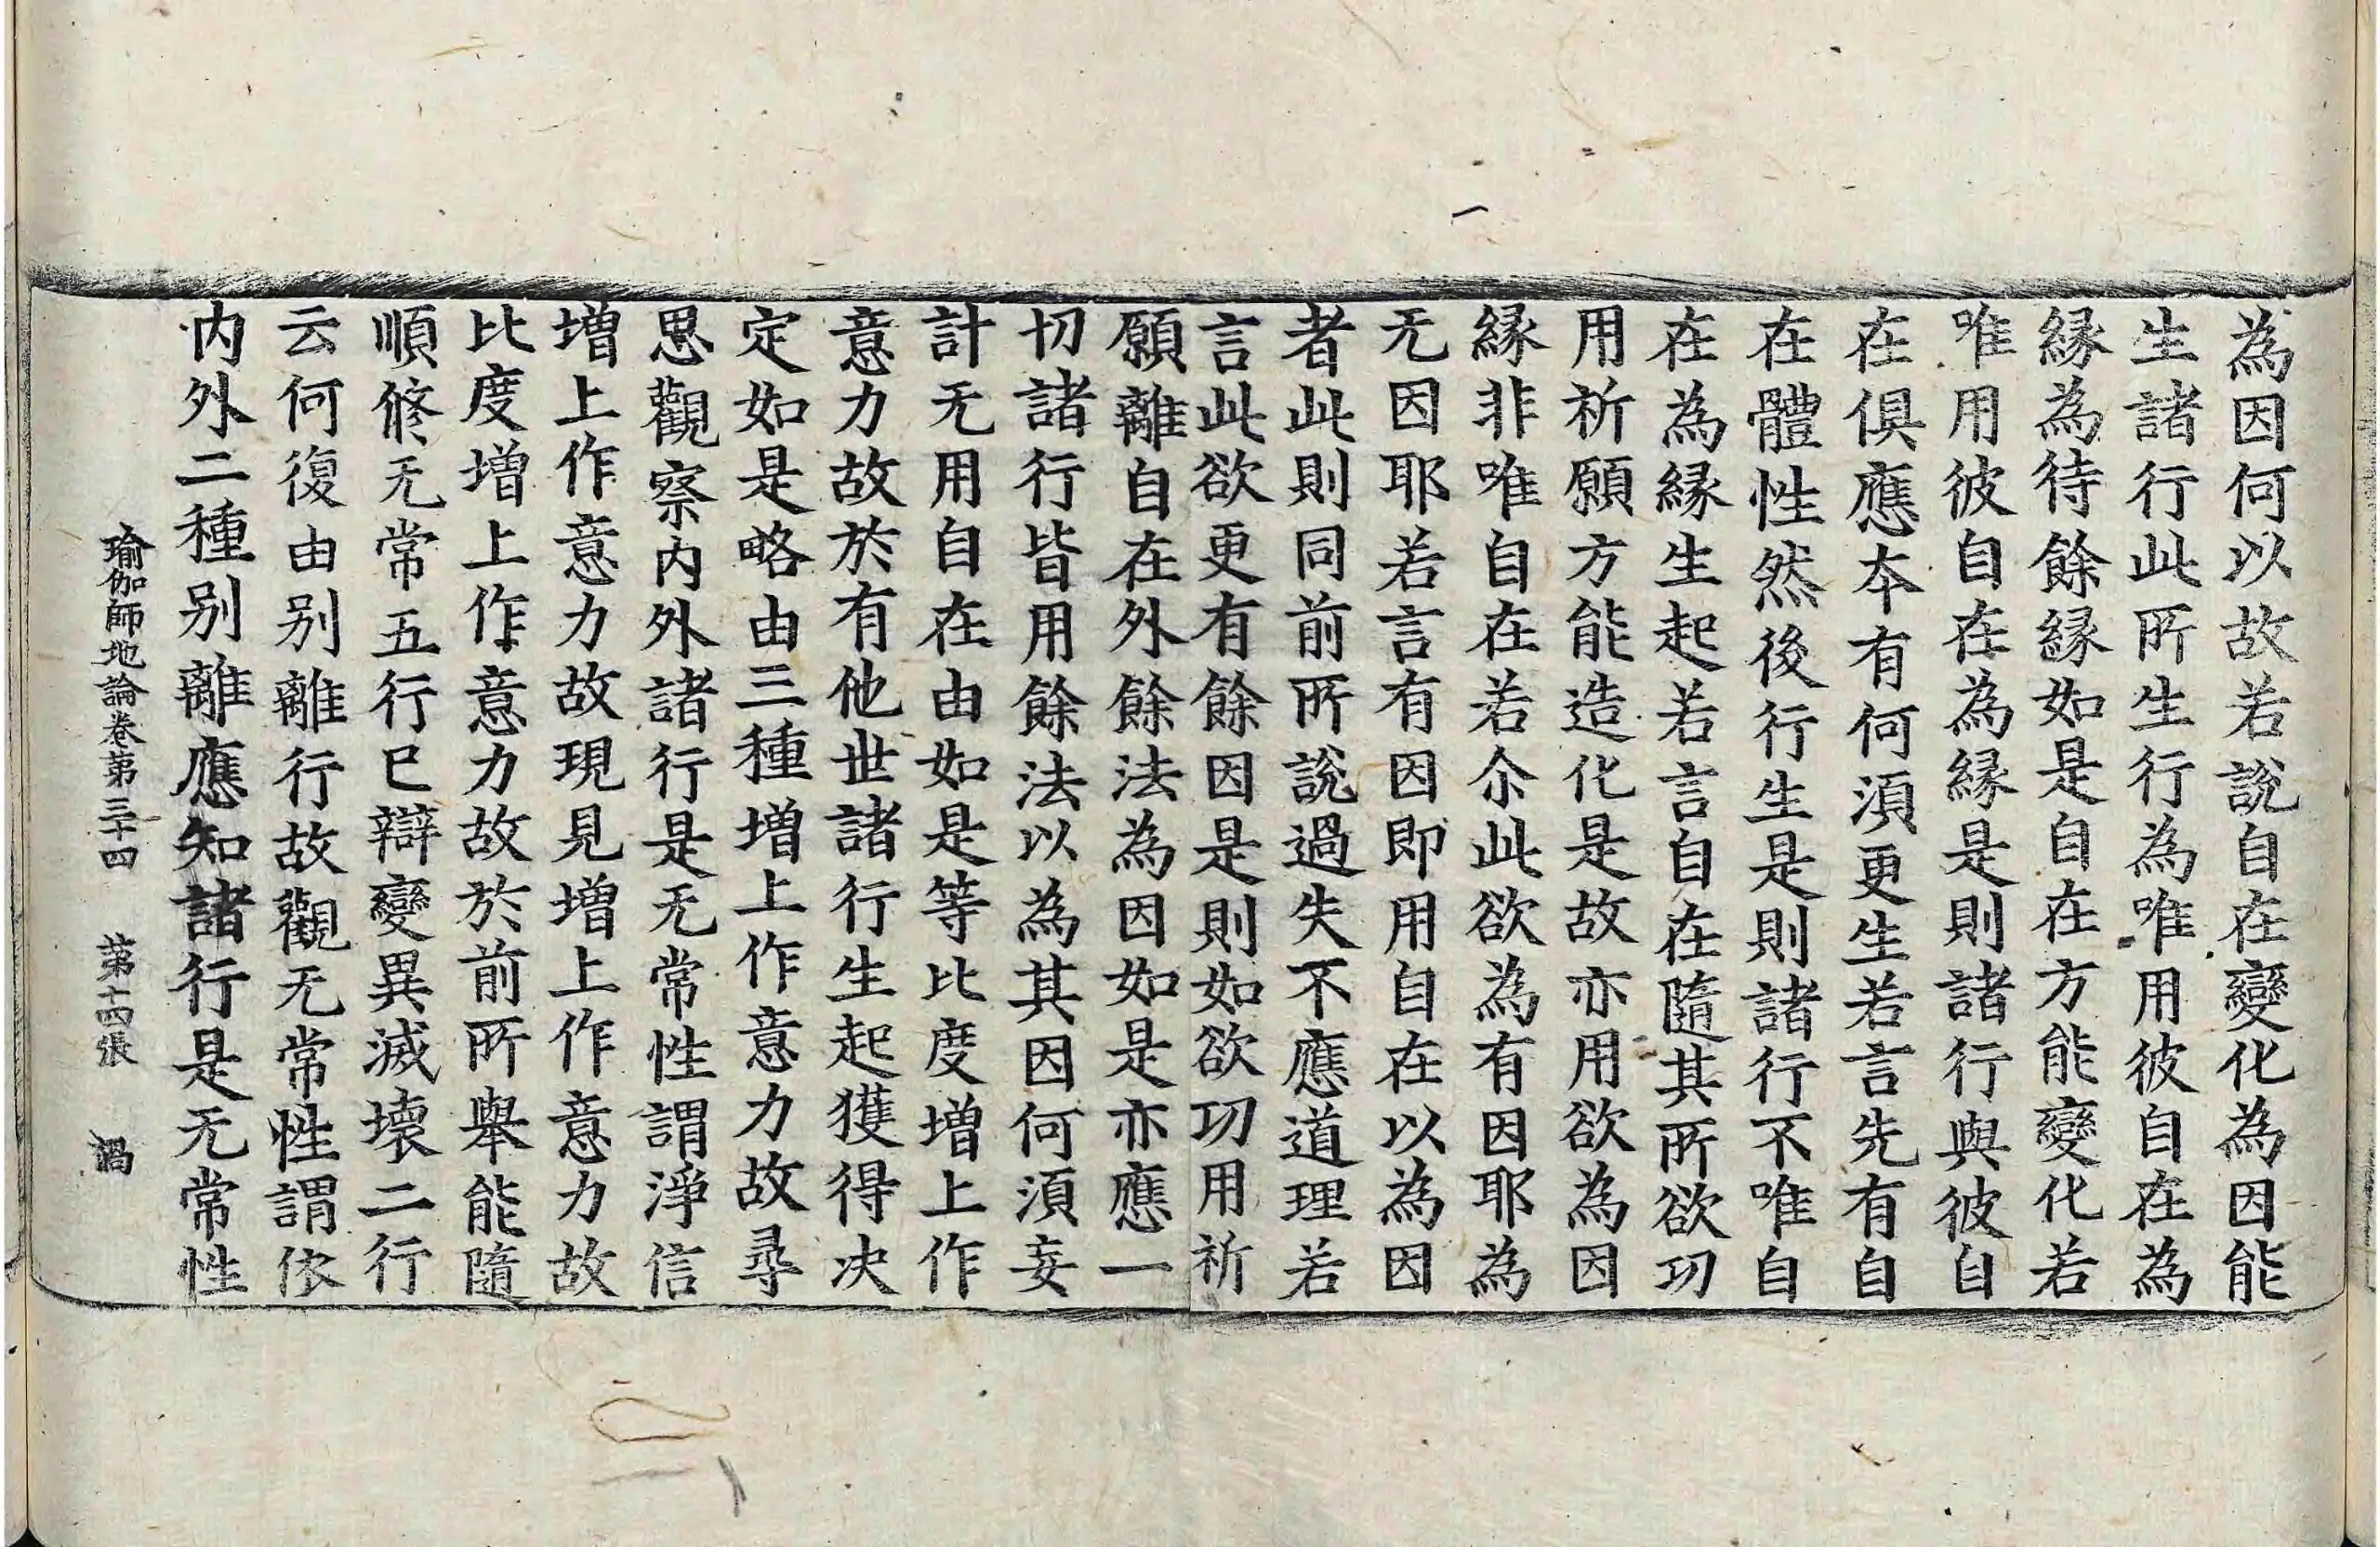 為因何以故若說自在變化為因能
生諸行此所生行為唯用彼自在為
緣為待餘緣如是自在方能變化若
唯用彼自在為緣是則諸行與彼自
在俱應夲有何湏更生若言先有自
在體性然後行生是則諸行不唯自
在為緣生起若言自在隨其所欲功
用祈願方能造化是故亦用欲為因
緣非唯自在若尒此欲為有因耶為
无因耶若言有因即用自在以為因
者此則同前所說過失不應道理若
言此欲更有餘因是則如欲功用祈
願離自在外餘法為因如是亦應一
切諸行皆用餘法以為其因何湏妄
計无用自在由如是等比度增上作
意力故於有他世諸行生起獲得决
定如是略由三種增上作意力故尋
思觀察內外諸行是无常性謂淨信
增上作意力故現見增上作意力故
比度增上作意力故於前所舉能隨
順修无常五行已辯變異滅壞二行
云何復由别離行故觀无常性謂依
內外二種别離應知諸行是无常性
瑜伽師地論卷第三十四　第十四張